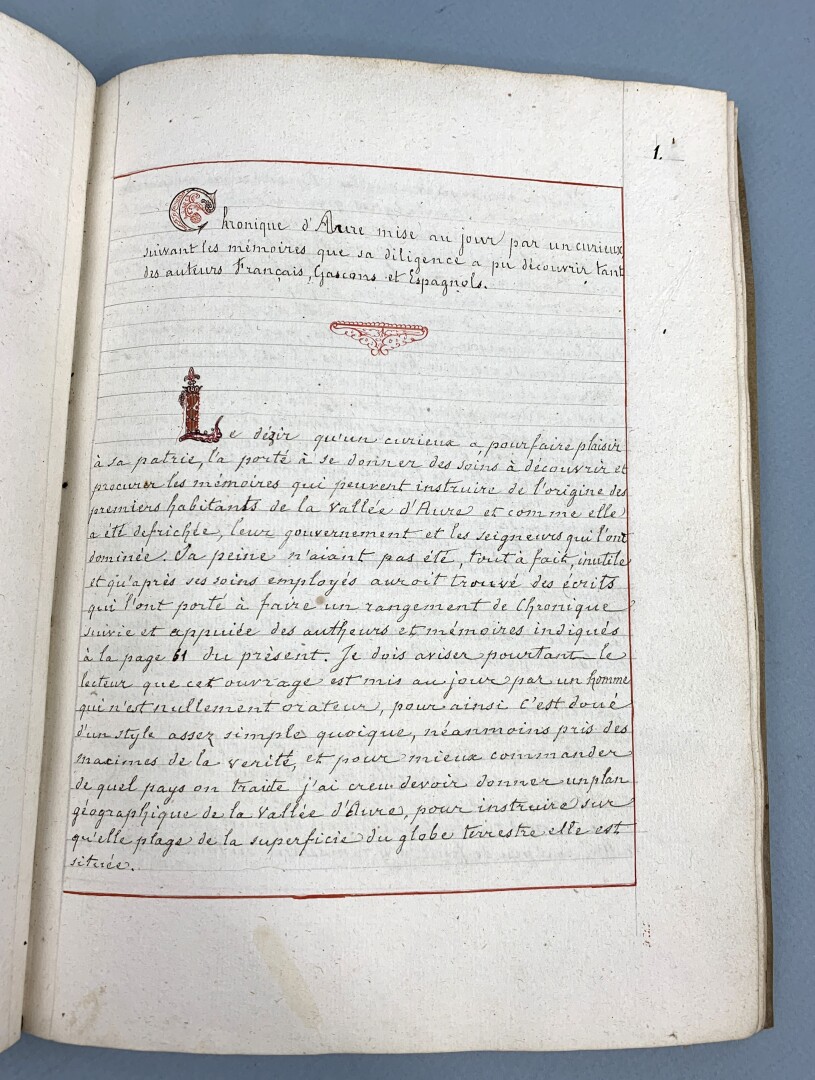 1.
Chronique d'Aure mise au jour par un curieux
suivant les mémoires que sa diligence a pu découvrir tant
des auteurs Français, Gascons et Espagnols.
Le dézir qu'un curieux a, pour faire plaisir
à sa patrie, l'a porté à se donner des soins à découvrir et
procurer les mémoires qui peuvent instruire de l'origine des
premiers habitants de la vallée d'Aure et comme elle
a été defrichée, leur gouvernement et les seigneurs qui l'ont
dominée. Sa peine n'aiant pas été, tout à fait, inutile
et qu'après ses soins employés auroit trouvé des écrits
qui l'ont porté à faire un rangement de Chronique
suivie et appuiée des autheurs et mémoires indiqués
à la page 61 du présent. Je dois aviser pourtant le
lecteur que cet ouvrage est mis au jour par un homme
qui n'est nullement orateur, pour ainsi c'est doué
d'un style assez simple quoique, néanmoins pris des
maximes de la verité, et pour mieux commander
de quel pays on traite j'ai creu devoir donner un plan
géographique de la vallée d'Aure, pour instruire sur
qu'elle plage de la superficie du globe terrestre elle est
située.